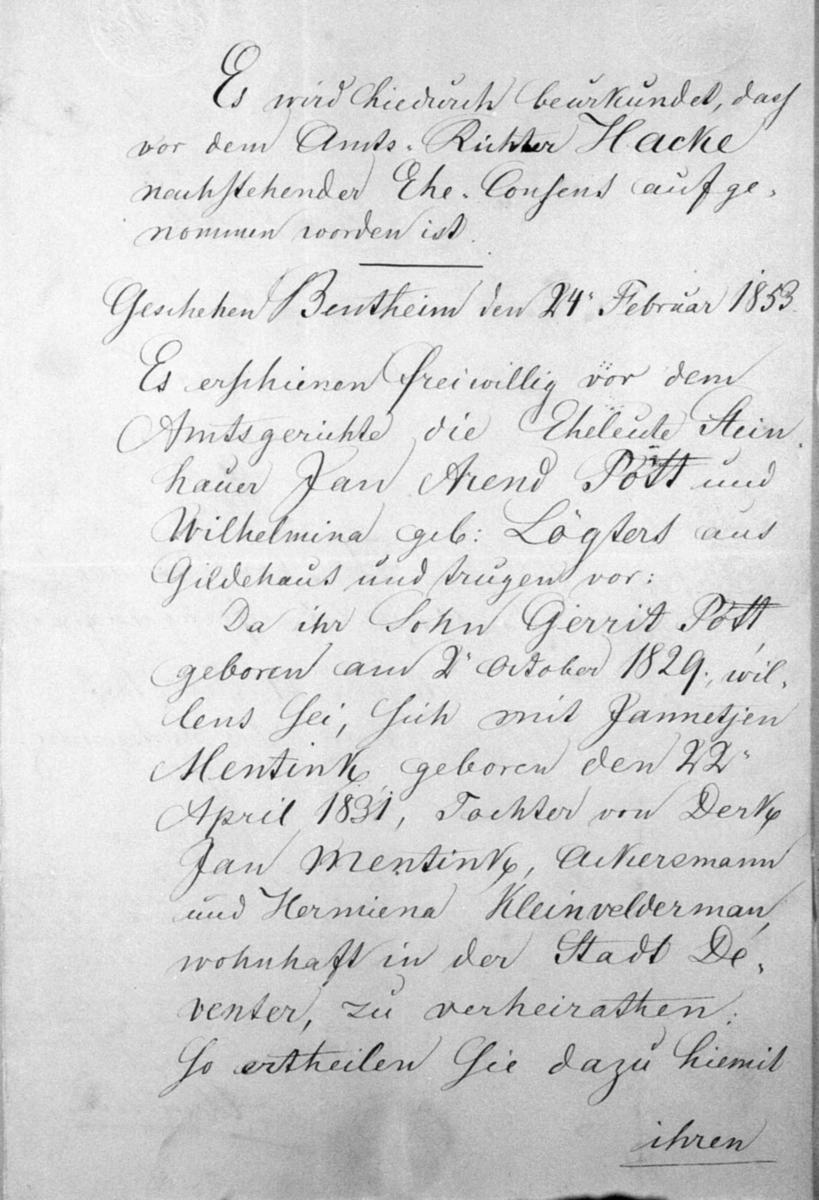 Es wird hiedurch beurkundet, dass
vor dem Amts-Richter Hacke
nachstehender Ehe-Consens aufge-
nommen worden ist.
Geschehen Bentheim den 24. Februar 1853.
Es erschienen freiwillig vor dem
Amtsgerichte die Eheleute Stein-
hauer Jan Arend Pött und
Wilhelmina geb: Lögters aus
Gildehaus und trugen vor:
Da ihr Sohn Gerrit Pött,
geboren am 2. October 1829., wil-
lens sei, sich mit Jannetjen
Mentink, geboren den 22.
April 1831, Tochter von Derk
Jan Mentink, Ackersmann
und Hermiena Kleinvelderman,
wohnhaft in der Stadt De-
venter, zu verheirathen:
So ertheilen Sie dazu hiemit
ihren